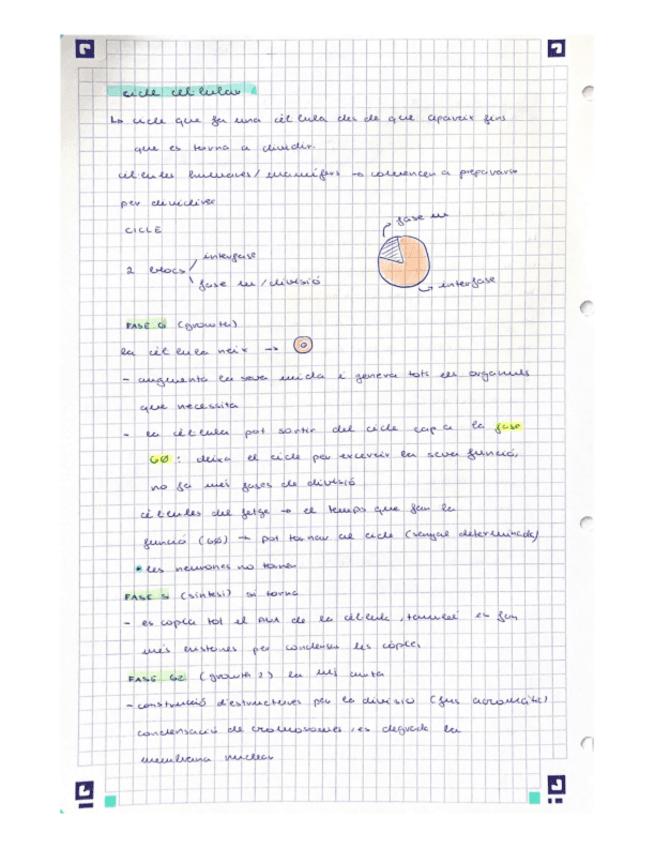 cicle cel·lular
↳ cicle que fa una cèl·lula des de que apareix fins
que es torna a dividir.
cèl·lules humanes/mamífers → comencen a preparar-se
per dividir-se
CICLE
fase M
2 blocs / interfase
\ fase M / divisió
↳ interfase
FASE G (growth)
la cèl·lula neix →
- augmenta la seva mida i genera tots els orgànuls
que necessita
- la cèl·lula pot sortir del cicle cap a la fase
GØ: deixa el cicle per exercir la seva funció,
no fa més fases de divisió
cèl·lules del fetge → el temps que fan la
funció (GØ) → pot tornar al cicle (senyal determinada)
• les neurones no tornen
FASE S (síntesi) si torna
- es copia tot el ADN de la cèl·lula, també es fan
més histones per condensar les còpies
FASE G2 (growth 2) la més curta
- construcció d'estructures per la divisió (fus acromàtic)
condensació de cromosomes, es degrada la
membrana nuclear